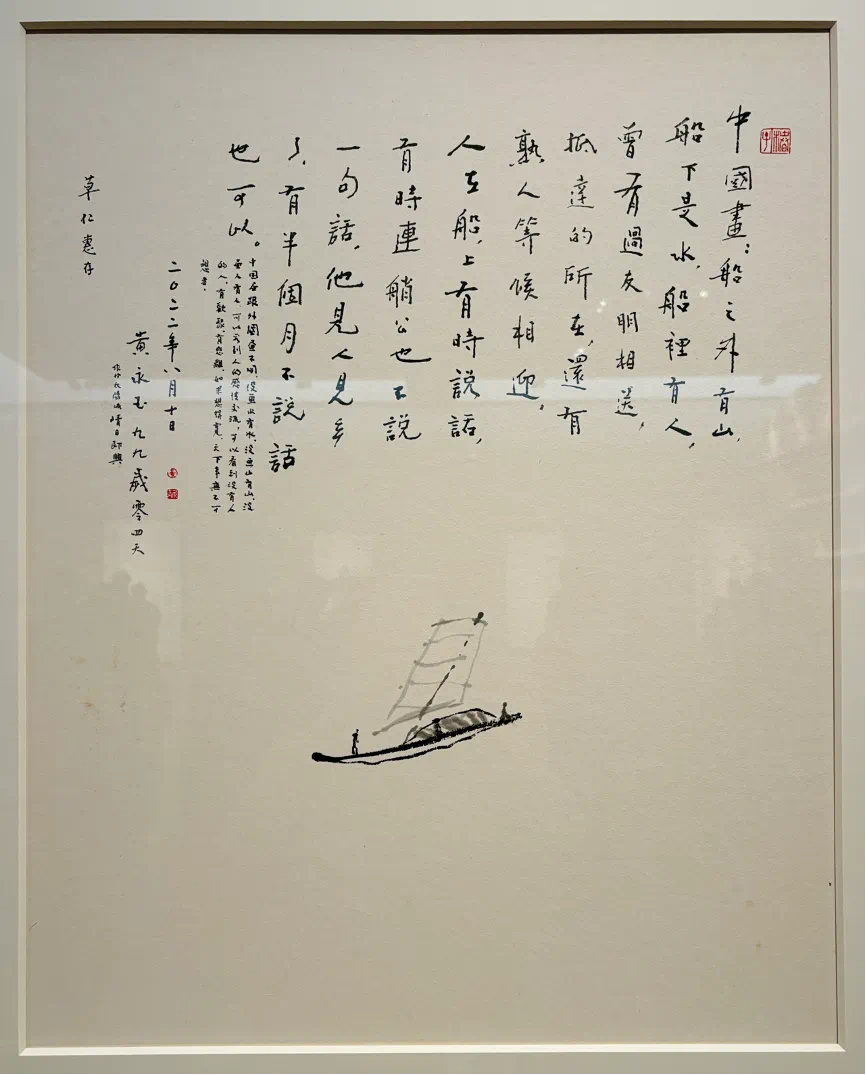 中國畫:船之外有山,
船下是水,船裡有人,
曾有過友朋相送,
抵達的所在,還有
熟人等候相迎,
人在船上,有時說話,
有時連艄公也不說
一句話,他見人見多
了,有半個月不說話
也可以。
中国畫跟外國畫不同,沒畫水有水,沒畫山有山,沒
畫人有人,可以看到人的感情交流,可以看到沒有人
的人,有歡聚,有悲離,如果想得寬,天下事無不可
想者。
二〇二二年八月十日
黃永玉九九歲零四天
晴日即興
草仁惠存